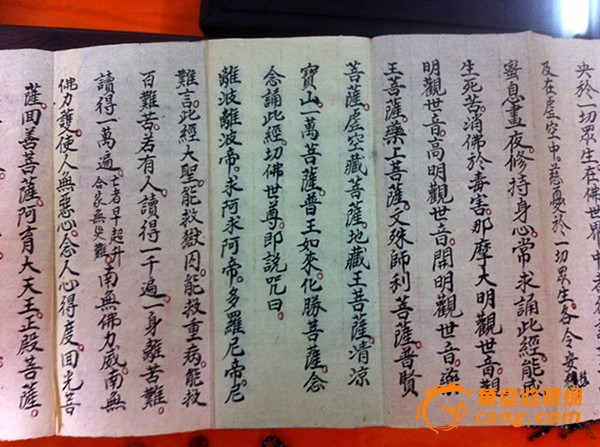 央於一切眾生在佛世界中者
及在虛空中。慈憂於一切眾生。各令安穩
蜜息晝夜修持身心。常求誦此經能滅
生死苦。消佛於毒害。那摩大明觀世音。觀
明觀世音。高明觀世音。開明觀世音。藥
王菩薩。藥上菩薩。文殊師利菩薩。普賢
菩薩。虛空藏菩薩。地藏王菩薩。清涼
寶山一萬菩薩。普王如來化勝菩薩。念
念誦此經。切佛世尊。即說咒曰。
離波離波帝。求阿求阿帝。多羅尼帝。尼
難言。此經大聖。能救獄囚。能救重病。能救
百難苦。若有人讀得一千遍。一身離苦難。
讀得一萬遍。亡者早超升。合家無災難。南無佛力威。南無
佛力護。使人無惡心。念人心得度。回光菩
薩。回善菩薩。阿育大天王。正殿菩薩。
华夏收藏网
cang.com